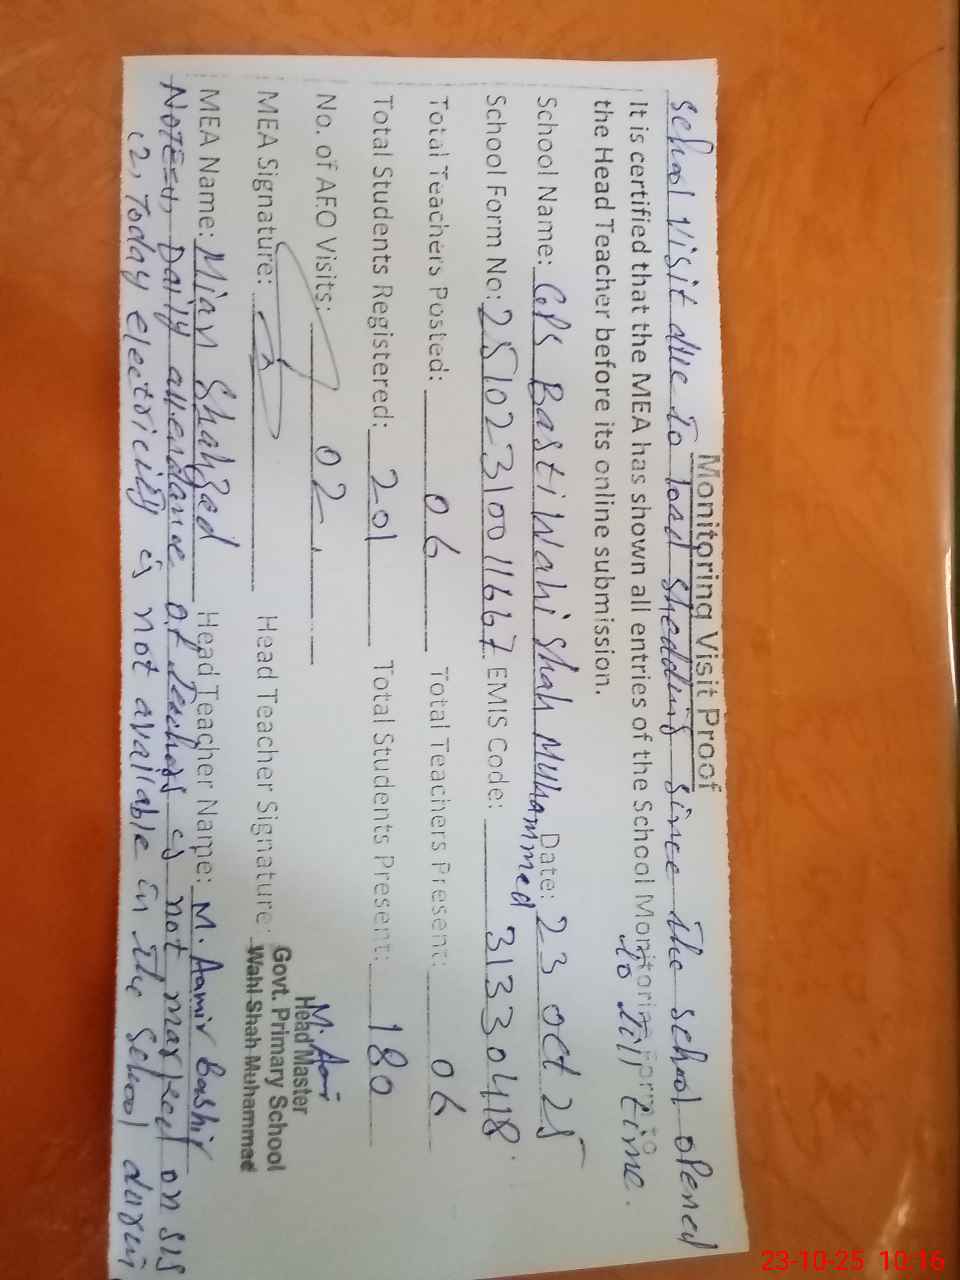 Monitoring Visit Proof
School visit due to load shedding since the school opened
to till time.
It is certified that the MEA has shown all entries of the School Monitoring
the Head Teacher before its online submission.
School Name: GPS Basti Wahi Shah Muhammed Date: 23 Oct 25
School Form No: 2510231001 1667 EMIS Code: 31330418
Total Teachers Posted: 06 Total Teachers Present: 06
Total Students Registered: 201 Total Students Present: 180
No. of AEO Visits: 02
M. Amir
Head Master
Govt. Primary School
Wahi Shah Muhammad
MEA Signature: Head Teacher Signature:
MEA Name: Mian Shahzad Head Teacher Name: M. Aamir Bashir
Note:- 1, Daily attendance of Teachers is not marked on SIS
(2, Today electricity is not available in the School durin
23-10-25 10:16